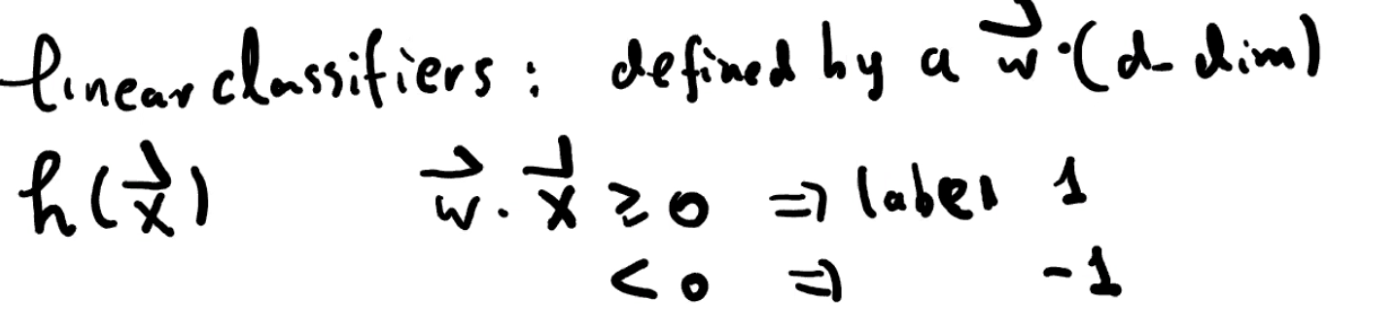 linear classifiers : defined by a w⃗ · (d-dim)
h(x⃗) w⃗ · x⃗ ≥ 0 ⇒ label 1
< 0 ⇒ -1